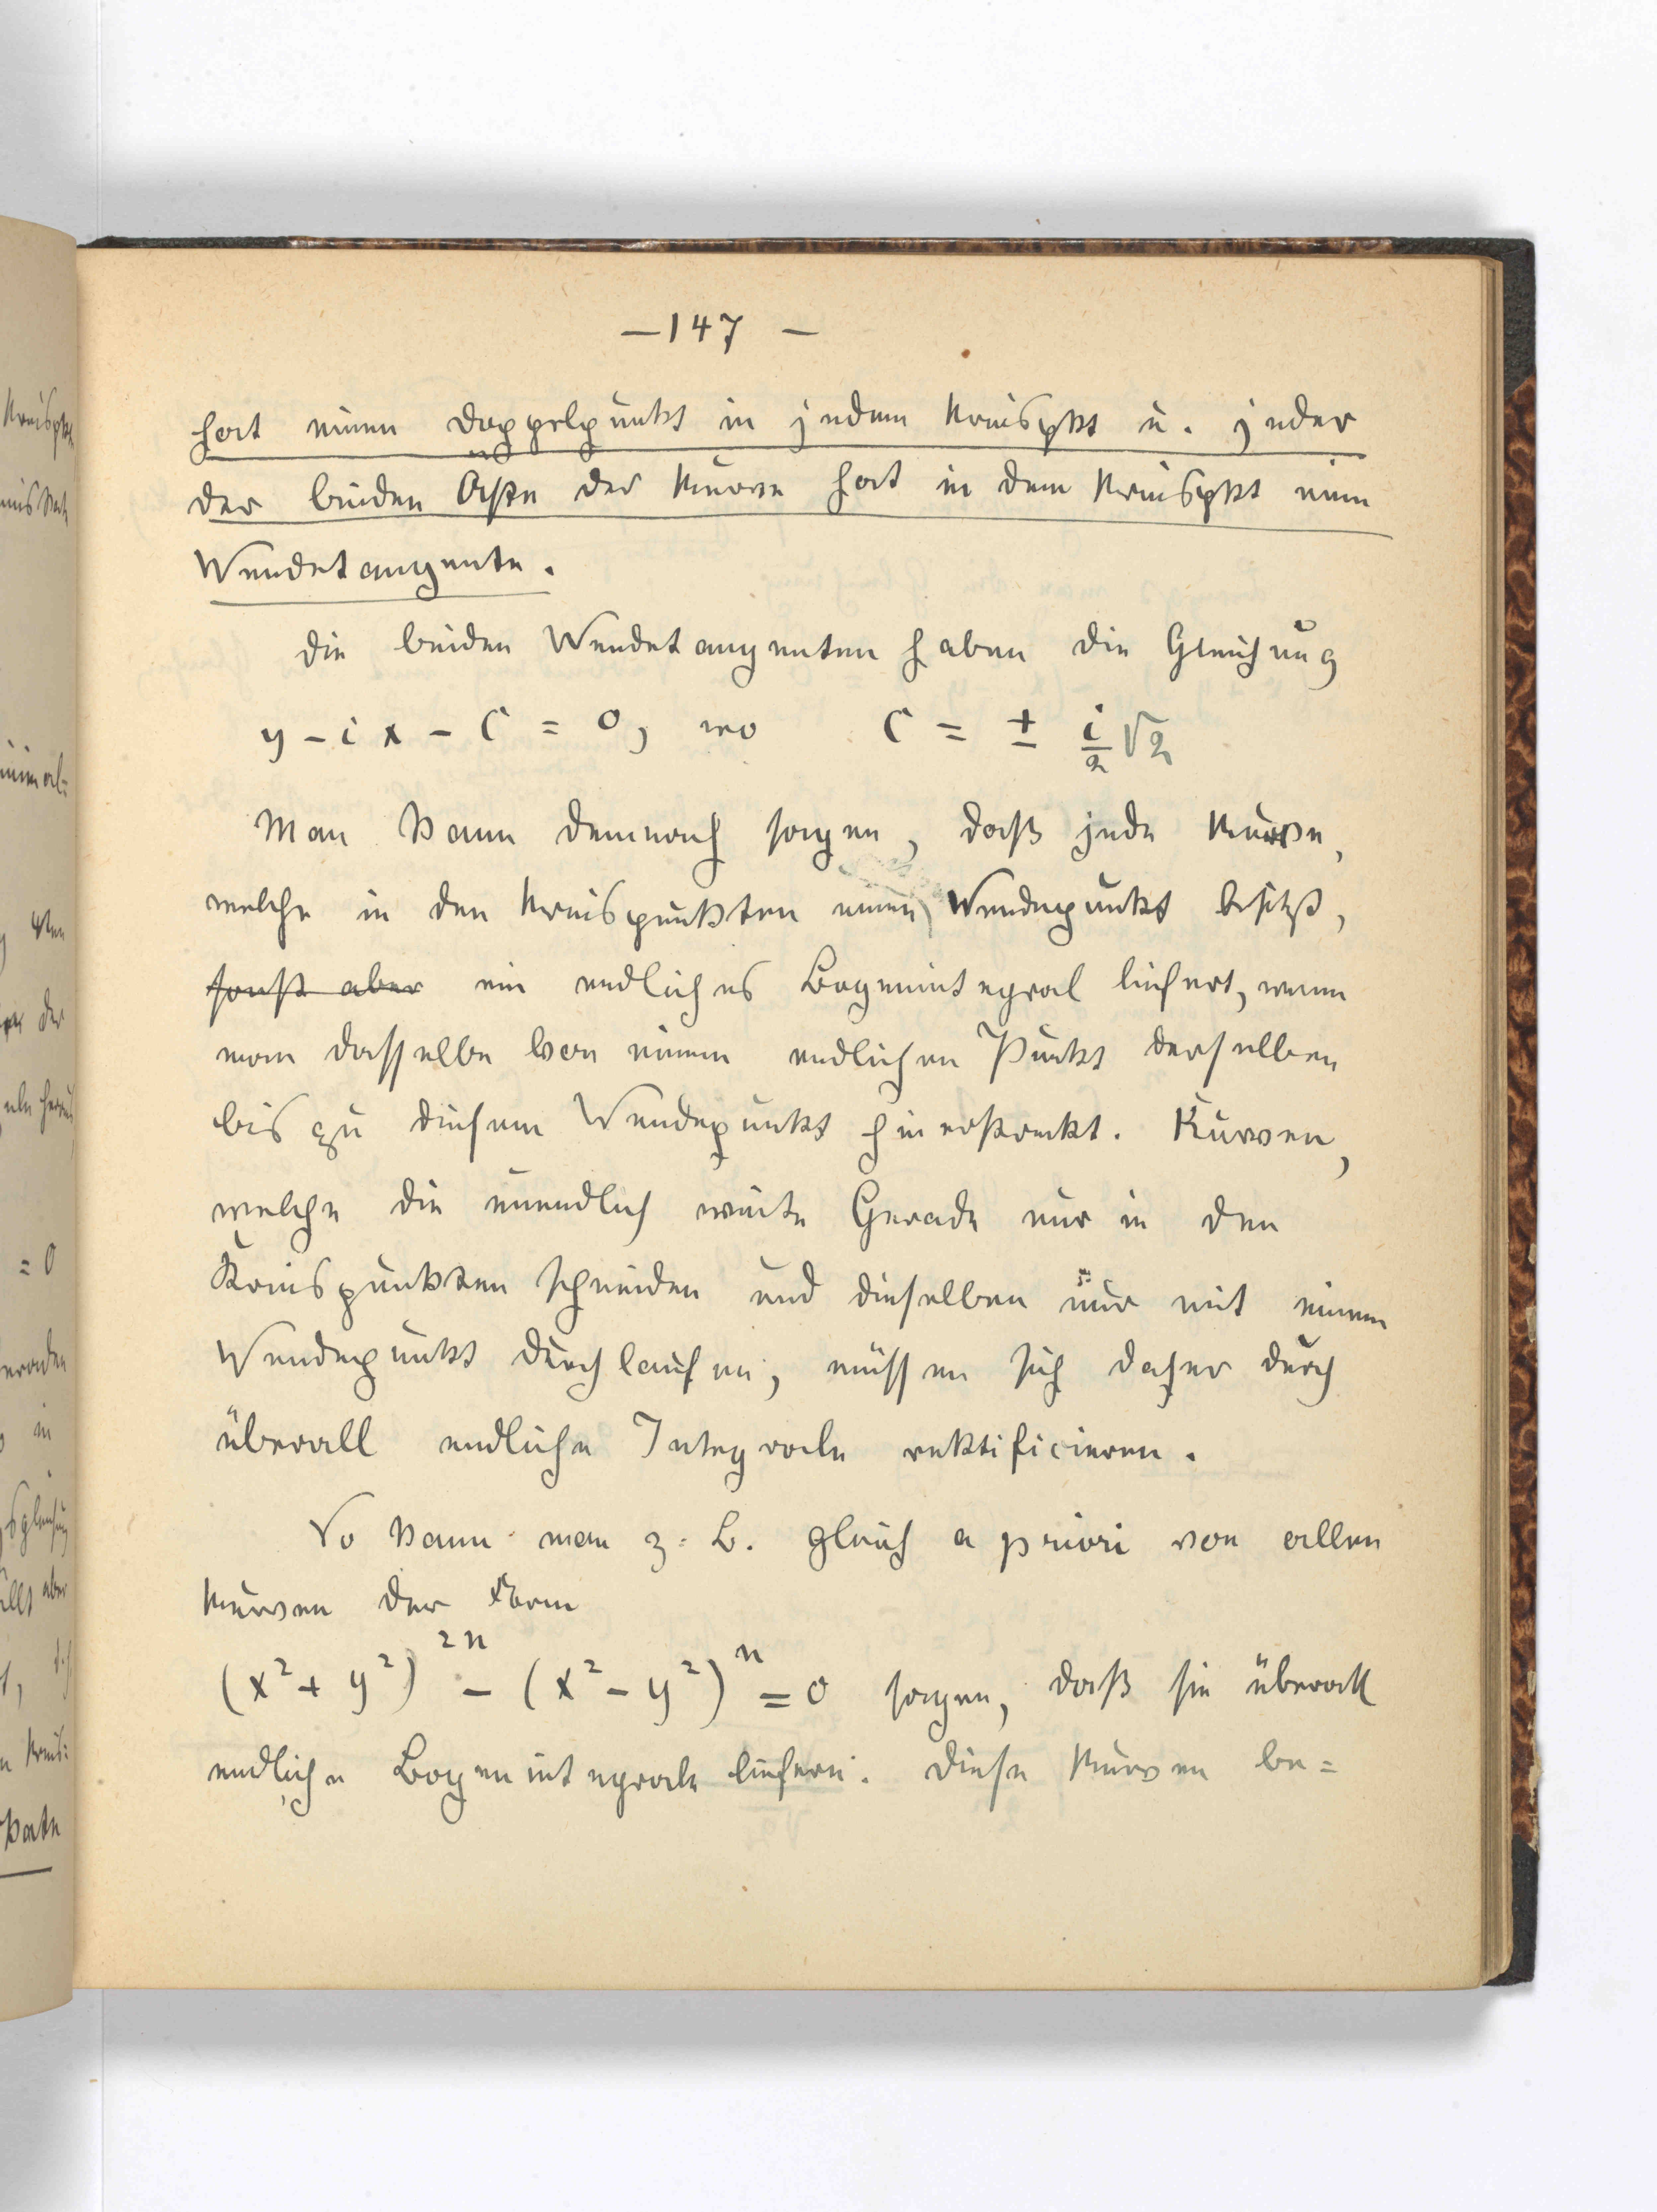 — 147 —
hat einen Doppelpunkt in jedem Kreispkt u. jeder
der beiden Äste der Kurve hat in dem Kreispkt eine
Wendetangente.
Die beiden Wendetangenten haben die Gleichung
y - i x - C = 0, wo C = ± i/2 √2
Man kann demnach sagen, daß jede Kurve,
welche in den Kreispunkten einen Wendepunkt besitzt,
sonst aber ein endliches Bogenintegral liefert, wenn
man dasselbe von einem endlichen Punkt derselben
bis zu diesem Wendepunkt hinerstreckt. Kurven,
welche die unendlich weite Gerade nur in den
Kreispunkten schneiden und dieselben nur mit einem
Wendepunkt durchlaufen, müssen sich daher durch
überall endliche Integrale rektificieren.
So kann man z. B. gleich a priori von allen
Kurven der Form
(x² + y²)²ⁿ - (x² - y²)ⁿ = 0 sagen, daß sie überall
endliche Bogenintegrale liefern. Diese Kurven be=
Kreispkt
4ten
der
= 0
Geraden
in
aber
Kreis: